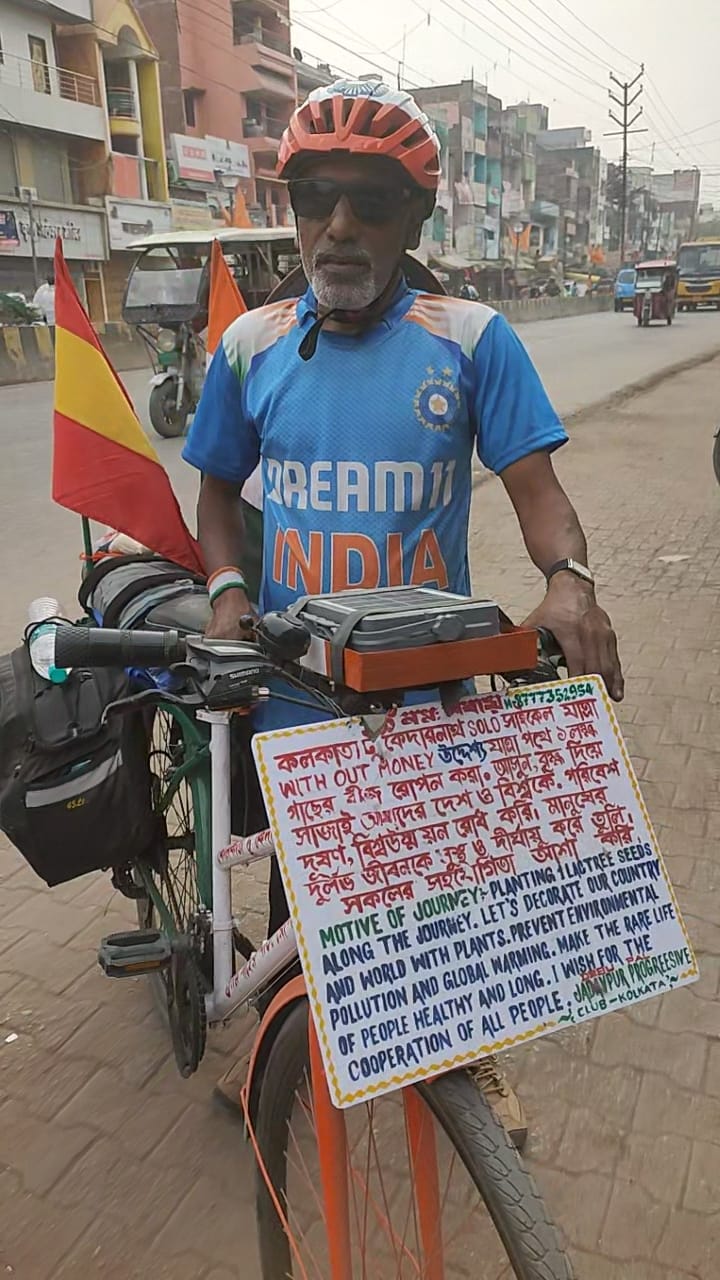 DREAM11
INDIA
SHIMANO
M-8777352954
কলকাতা TO কেদারনাথ SOLO সাইকেল যাত্রা
WITH OUT MONEY উদ্দেশ্য যাত্রা পথে ১লক্ষ
গাছের বীজ রোপন করা। আসুন, বৃক্ষ দিয়ে
সাজাই আমাদের দেশ ও বিশ্বকে। পরিবেশ
দূষণ, বিশ্বউষ্ণায়ন রোধ করি। মানুষের
দুর্লভ জীবনকে সুস্থ ও দীর্ঘায়ু করে তুলি,
সকলের সহযোগিতা আশা করি
MOTIVE OF JOURNEY:- PLANTING 1 LAC TREE SEEDS
ALONG THE JOURNEY. LET'S DECORATE OUR COUNTRY
AND WORLD WITH PLANTS. PREVENT ENVIRONMENTAL
POLLUTION AND GLOBAL WARMING. MAKE THE RARE LIFE
OF PEOPLE HEALTHY AND LONG. I WISH FOR THE
COOPERATION OF ALL PEOPLE,
JADAVPUR PROGREESIVE
CLUB - KOLKATA